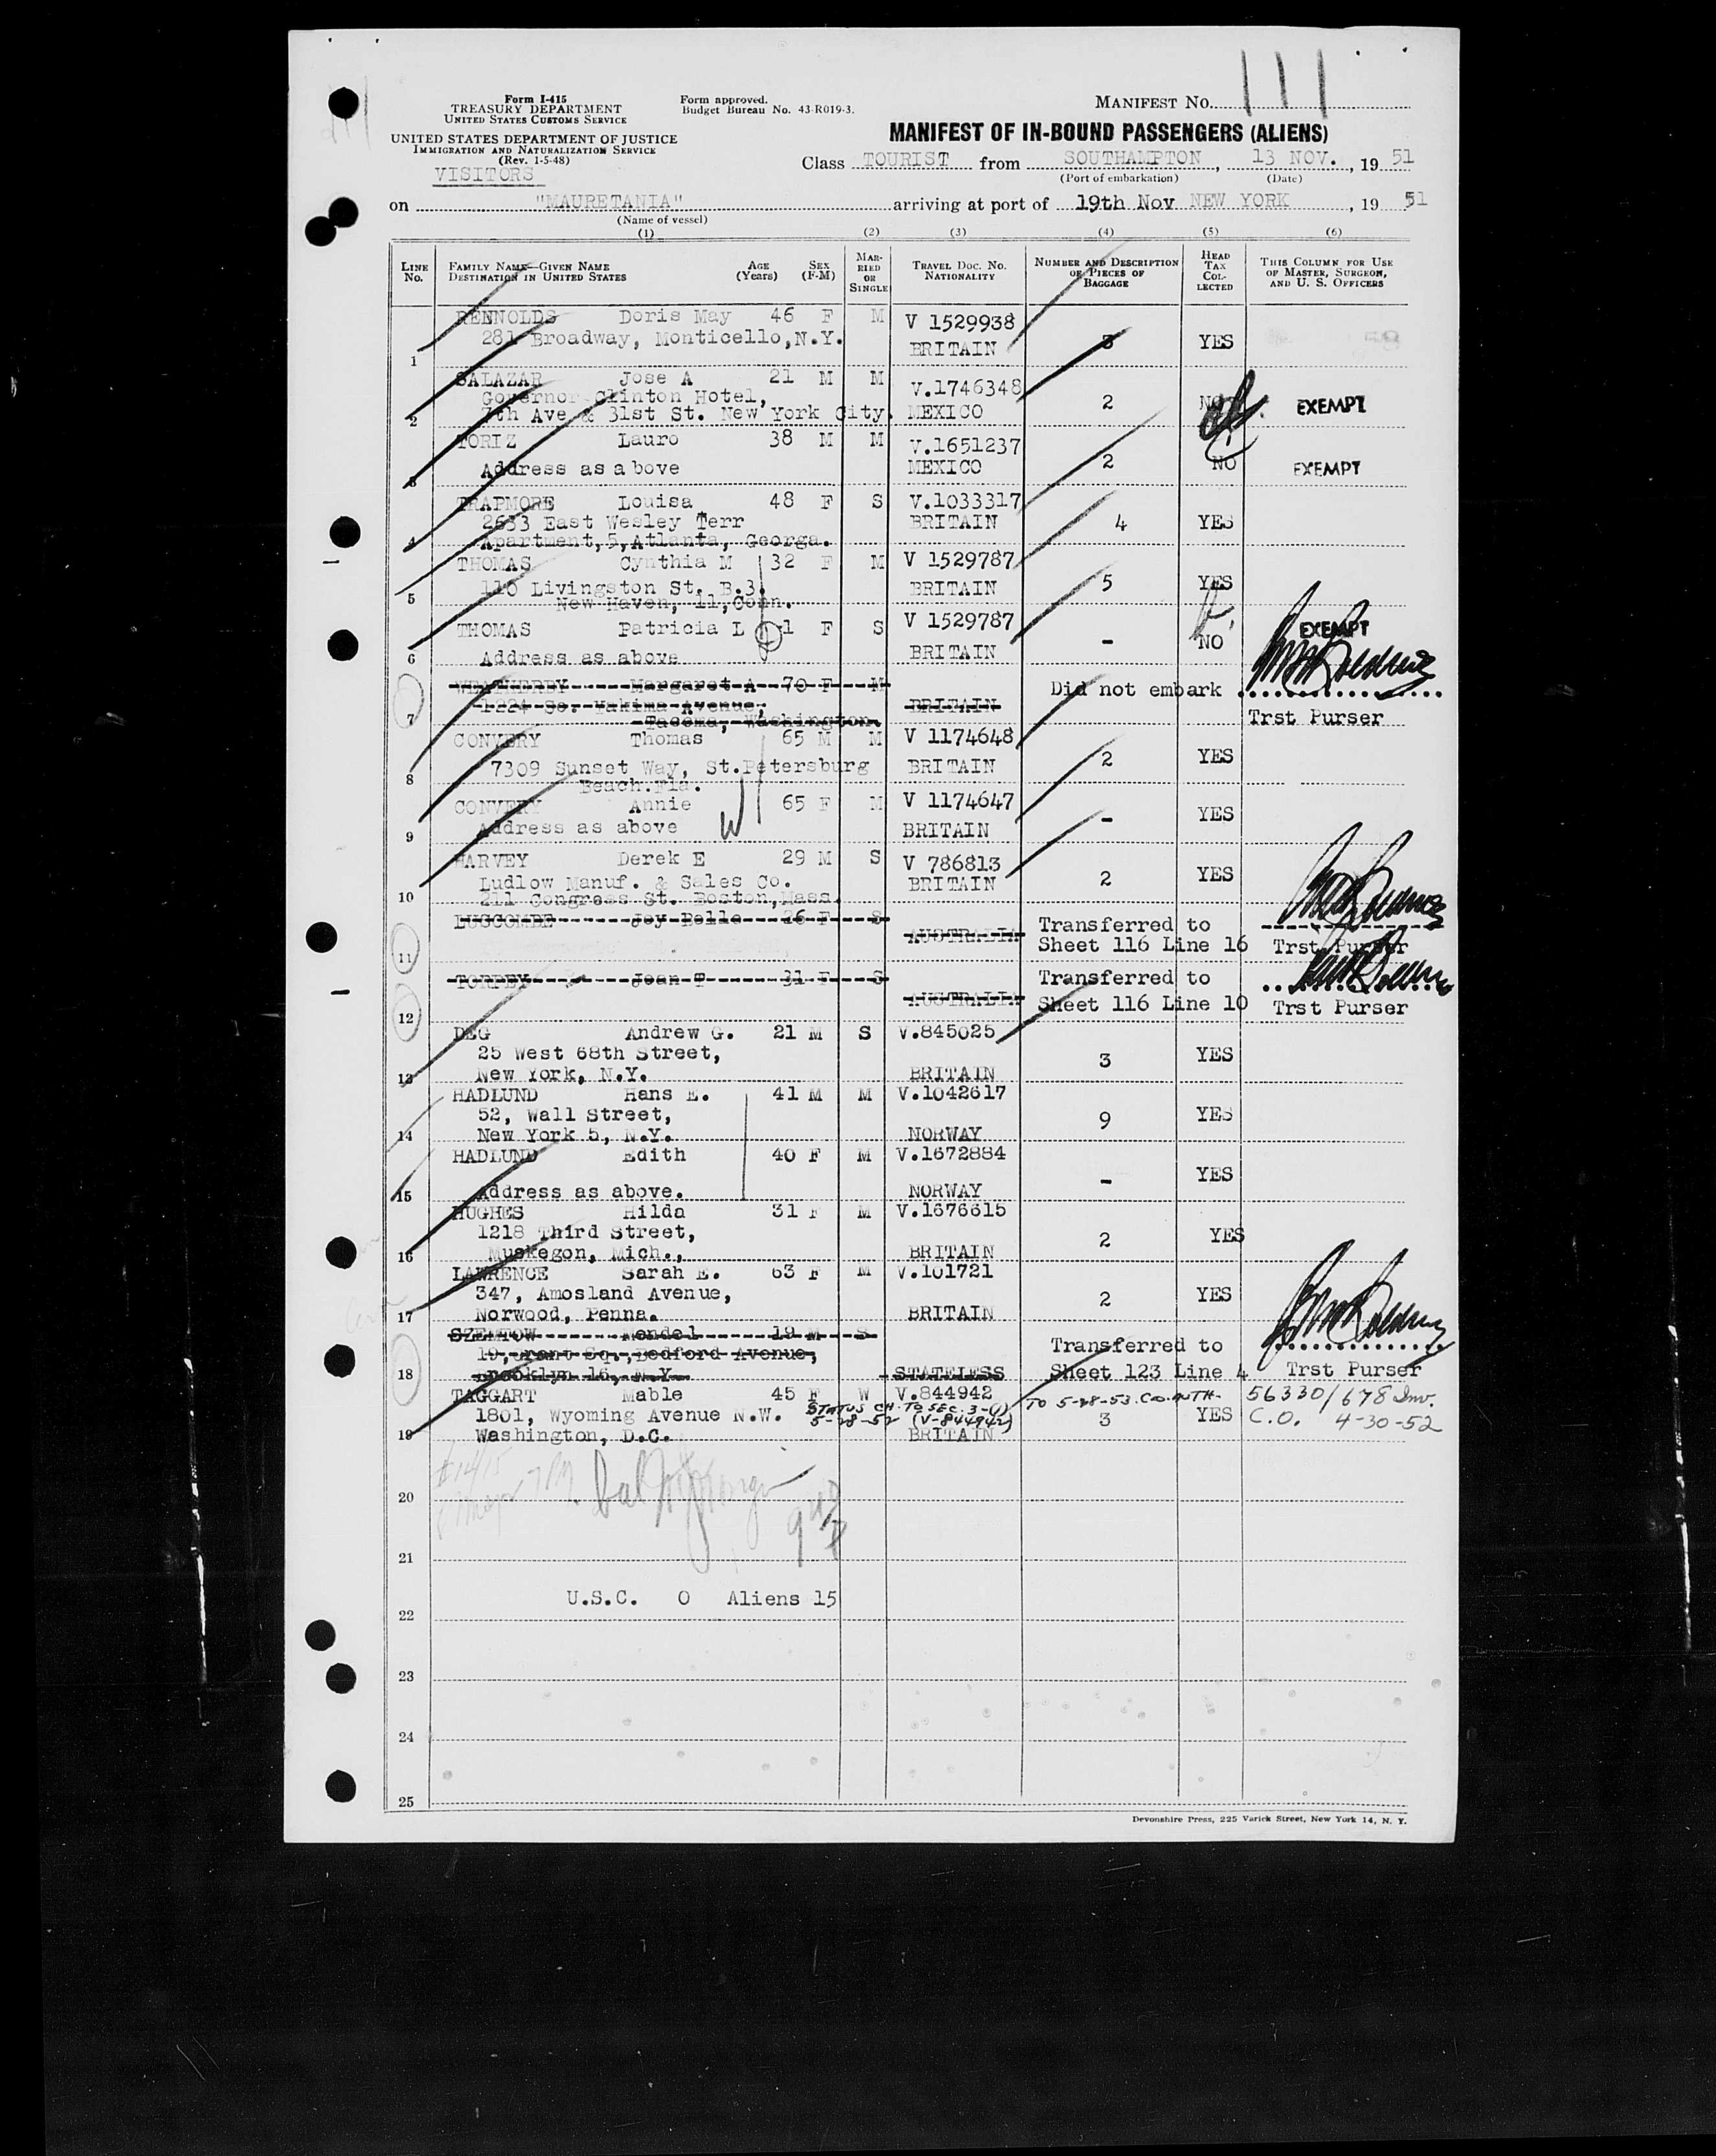 111
Form I-415
TREASURY DEPARTMENT
UNITED STATES CUSTOMS SERVICE
Form approved.
Budget Bureau No. 43-R019-3.
MANIFEST No.
UNITED STATES DEPARTMENT OF JUSTICE
IMMIGRATION AND NATURALIZATION SERVICE
(Rev. 1-5-48)
VISITORS
MANIFEST OF IN-BOUND PASSENGERS (ALIENS)
Class TOURIST from SOUTHAMPTON, 13 NOV., 19 51
(Port of embarkation) (Date)
on "MAURETANIA" arriving at port of 19th Nov NEW YORK, 19 51
(Name of vessel)
(1) (2) (3) (4) (5) (6)
LINE No. FAMILY NAME—GIVEN NAME DESTINATION IN UNITED STATES AGE (Years) SEX (F-M) MARRIED OR SINGLE TRAVEL DOC. No. NATIONALITY NUMBER AND DESCRIPTION OF PIECES OF BAGGAGE HEAD TAX COLLECTED THIS COLUMN FOR USE OF MASTER, SURGEON, AND U. S. OFFICERS
RENNOLDS Doris May 46 F M V 1529938
281 Broadway, Monticello,N.Y.
1 BRITAIN 3 YES
SALAZAR Jose A 21 M M V.1746348
Governor Clinton Hotel,
2 7th Ave & 31st St. New York City. MEXICO 2 NO EXEMPT
TORIZ Lauro 38 M M V.1651237
3 Address as above MEXICO 2 NO EXEMPT
TRAPMORE Louisa 48 F S V.1033317
2633 East Wesley Terr BRITAIN 4 YES
4 Apartment,5,Atlanta, Georga.
THOMAS Cynthia M 32 F M V 1529787
110 Livingston St. B.3. BRITAIN 5 YES
5 New Haven, 11,Conn.
THOMAS Patricia L -1 F S V 1529787
6 Address as above BRITAIN - NO EXEMPT
WEATHERBY Margaret A 70 F M Did not embark
1224 So. Yakima Avenue, BRITAIN
7 Tacoma, Washington. Trst Purser
CONVERY Thomas 65 M M V 1174648
7309 Sunset Way, St.Petersburg BRITAIN 2 YES
8 Beach.Fla.
CONVERY Annie 65 F M V 1174647
9 Address as above BRITAIN - YES
HARVEY Derek E 29 M S V 786813
Ludlow Manuf. & Sales Co. BRITAIN 2 YES
10 211 Congress St. Boston,Mass.
LUSCOMBE Joy Belle 26 F S Transferred to
11 AUSTRALIA Sheet 116 Line 16 Trst Purser
TORPEY Joan T 31 F S Transferred to
12 AUSTRALIA Sheet 116 Line 10 Trst Purser
DEG Andrew G. 21 M S V.845025
25 West 68th Street, 3 YES
13 New York, N.Y. BRITAIN
HADLUND Hans E. 41 M M V.1042617
52, Wall Street, 9 YES
14 New York 5, N.Y. NORWAY
HADLUND Edith 40 F M V.1672884
- YES
15 Address as above. NORWAY
HUGHES Hilda 31 F M V.1676615
1218 Third Street, 2 YES
16 Muskegon, Mich., BRITAIN
LAWRENCE Sarah E. 63 F M V.101721
347, Amosland Avenue, 2 YES
17 Norwood, Penna. BRITAIN
SZEMTOW Mendel 19 M S Transferred to
19, Grant Sq., Bedford Avenue,
18 Brooklyn 16, N.Y. STATELESS Sheet 123 Line 4 Trst Purser
TAGGART Mable 45 F W V.844942 TO 5-28-53. C.O. AUTH. 56330/678 Inv.
STATUS CH. TO SEC. 3-(1)
1801, Wyoming Avenue N.W. 5-28-52 (V-844942) 3 YES C.O. 4-30-52
19 Washington, D.C. BRITAIN
20
21
U.S.C. O Aliens 15
22
23
24
25
Devonshire Press, 225 Varick Street, New York 14, N. Y.